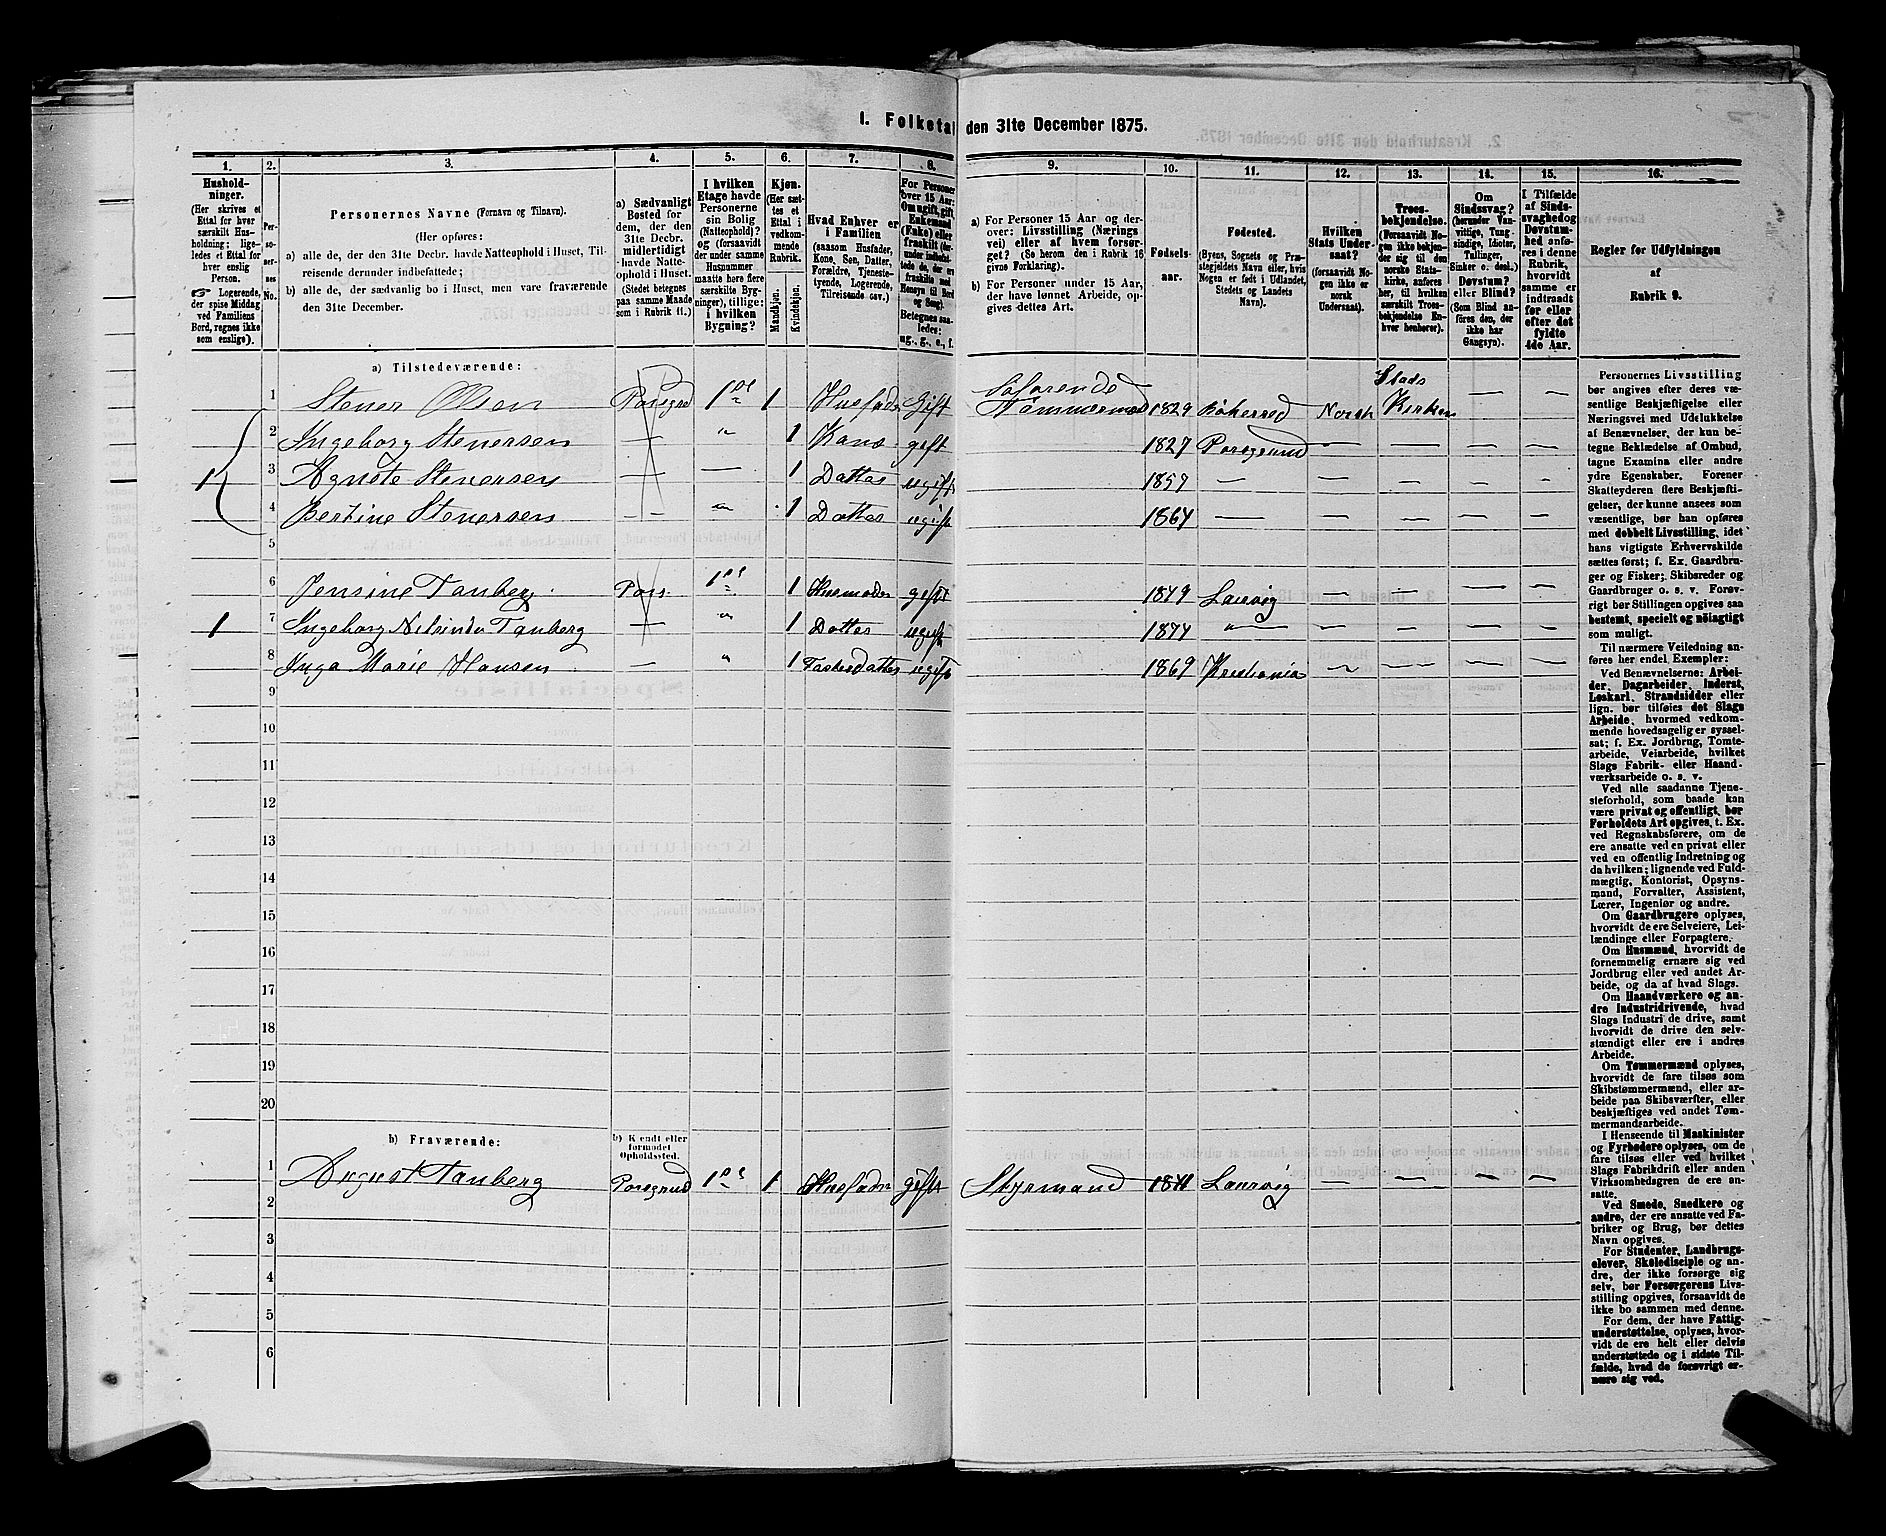 I. Folketal den 31te December 1875.
1. 2. 3. 4. 5. 6. 7. 8. 9. 10. 11. 12. 13. 14. 15. 16.
Hushold-
ninger.
(Her skrives et
Ettal for hver
særskilt Hus-
holdning; lige-
ledes et Ettal for
hver enslig
Person.
☞ Logerende,
der spise Middag
ved Familiens
Bord, regnes ikke
som enslige).
Per-
so-
ner-
nes
No.
Personernes Navne (Fornavn og Tilnavn).
(Her opføres:
a) alle de, der den 31te Decbr. havde Natteophold i Huset, Til-
reisende derunder indbefattede;
b) alle de, der sædvanlig bo i Huset, men vare fraværende
den 31te December.
a) Sædvanligt
Bosted for
dem, der den
31te Decbr.
midlertidigt
havde Natte-
ophold i Huset.
(Stedet betegnes
paa samme Maade
som i Rubrik 11.)
I hvilken
Etage havde
Personerne
sin Bolig
(Natteophold)?
og (forsaavidt
der under samme
Husnummer
maatte høre flere
særskilte Byg-
ninger), tillige:
i hvilken
Bygning?
Kjøn.
(Her sæt-
tes et
Ettal i
vedkom-
mende
Rubrik.
Mandkjøn.
Kvindekjøn.
Hvad Enhver er
i Familien
(saasom Husfader,
Kone, Søn, Datter,
Forældre, Tjeneste-
tyende, Logerende,
Tilreisende osv.)
For Personer
over 15 Aar:
Om ugift, gift,
Enkemand
(Enke) eller
fraskilt
Betegnes saa-
ledes:
ug., g., e., f.
a) For Personer 15 Aar og der-
over: Livsstilling (Nærings
vei) eller af hvem forsør-
get? (Se herom den i Rubrik 16
givne Forklaring).
b) For Personer under 15 Aar,
der have lønnet Arbeide, op-
gives dettes Art.
Fødsels-
aar.
Fødested.
(Byens, Sognets og Præ-
stegjeldets Navn eller, hvis
Nogen er født i Udlandet,
Stedets og Landets
Navn).
Hvilken
Stats Under-
saat?
(forsaavidt No-
gen ikke er
norsk
Undersaat).
Troes-
bekjendelse.
(Forsaavidt No-
gen ikke bekjen-
der sig til den
norske Stats-
kirke, anføres
her, til hvilken
særskilt Troes-
bekjendelse En-
hver henhører).
Om
Sindssvag?
(herunder Van-
vittige, Tung-
sindige, Idioter,
Tullinger,
Sinker o. desl.)
Døvstum?
eller Blind?
(Som Blind an-
føres den, der
ikke har
Gangsyn).
I Tilfælde
af Sinds-
svaghed og
Døvstum-
hed anfø-
res i denne
Rubrik,
hvorvidt
samme er
indtraadt
før eller
efter det
fyldte
4de Aar.
Regler for Udfyldningen
af
Rubrik 9.
a) Tilstedeværende:
1 Stener Olsen Porsgrd 1ste 1 Husfader Gift Søfarende Tømmermand 1829 Norsk Stads Kirken — —
2 Ingeborg Stenersen — " 1 Kone gift 1827 Porsgrund — — — —
1 3 Agnete Stenersen — — 1 Datter ugift 1857 — — — — —
4 Bertine Stenersen — " 1 Datter ugift 1864 — — — — —
5
6 Jensine Tanberg Pors 1ste 1 Husmoder gift 1849 Laurvig — — — —
1 7 Ingeborg Nelsinda Tanberg — " 1 Datter ugift 1874 " — — — —
8 Inga Marie Hansen — " 1 Fosterdatter ugift 1869 Kristiania — — — —
9
10
11
12
13
14
15
16
17
18
19
20
b) Fraværende:
b) Kjendt eller
formodet
Opholdssted.
1 August Tanberg Porsgrud 1ste 1 Husfader gift Styrmand Laurvig — — — —
2
3
4
5
6
Personernes Livsstilling
bør angives efter deres væ-
sentlige Beskjæftigelse eller
Næringsvei med Udelukkelse
af Benævnelser, der kun be-
tegne Beklædelse af Ombud,
tagne Examina eller andre
ydre Egenskaber. Forener
Skatteyderen flere Beskjæfti-
gelser, der kunne ansees som
væsentlige, bør han opføres
med dobbelt Livsstilling, idet
hans vigtigste Erhvervskilde
sættes først; f. Ex. Gaardbru-
ger og Fisker; Skibsreder og
Gaardbruger o. s. v. Forøv-
rigt bør Stillingen opgives saa
bestemt, specielt og nöiagtigt
som muligt.
Til nærmere Veiledning an-
føres her endel Exempler:
Ved Benævnelserne: Arbei-
der, Dagarbeider, Inderst,
Løskarl, Strandsidder eller
lign. bør tilføies det Slags
Arbeide, hvormed vedkom-
mende hovedsagelig er syssel-
sat; f. Ex. Jordbrug, Tomte-
arbeide, Veiarbeide, hvilket
Slags Fabrik- eller Haand-
værksarbeide o. s. v.
Ved alle saadanne Tjene-
steforhold, som baade kan
være privat og offentligt, bør
Forholdets Art opgives, t. Ex.
ved Regnskabsførere, om de
ere ansatte ved en privat eller
ved en offentlig Indretning og
da hvilken; lignende ved Fuld-
mægtig, Kontorist, Opsyns-
mand, Forvalter, Assistent,
Lærer, Ingeniør og andre.
Om Gaardbrugere oplyses,
hvorvidt de ere Selveiere, Lei-
lændinge eller Forpagtere.
Om Husmænd, hvorvidt de
fornemmelig ernære sig ved
Jordbrug eller ved andet Ar-
beide, og da af hvad Slags.
Om Haandværkere og an-
dre Industridrivende, hvad
Slags Industri de drive, samt
hvorvidt de drive den selv-
stændigt eller ere i andres
Arbeide.
Om Tømmermænd oplyses,
hvorvidt de fare tilsøs som
Skibstømmermænd, eller ar-
beide paa Skibsværfter, eller
beskjæftiges ved andet Tøm-
mermandsarbeide.
I Henseende til Maskinister
og Fyrbødere oplyses, om de
fare tilsøs eller ved hvilket
Slags Fabrikdrift eller anden
Virksomhedsgren de ere an-
satte.
Ved Smede, Snedkere og
andre, der ere ansatte ved Fa-
briker og Brug, bør dettes
Navn opgives.
For Studenter, Landbrugs-
elever, Skoledisciple og an-
dre, der ikke forsørge sig
selv, bør Forsørgerens Livs-
stilling opgives, forsaavidt de
ikke bo sammen med denne.
For dem, der have Fattig-
understøttelse, oplyses, hvor-
vidt de ere helt eller delvis
understøttede og i sidste Til-
fælde, hvad de forøvrigt er-
nære sig ved.